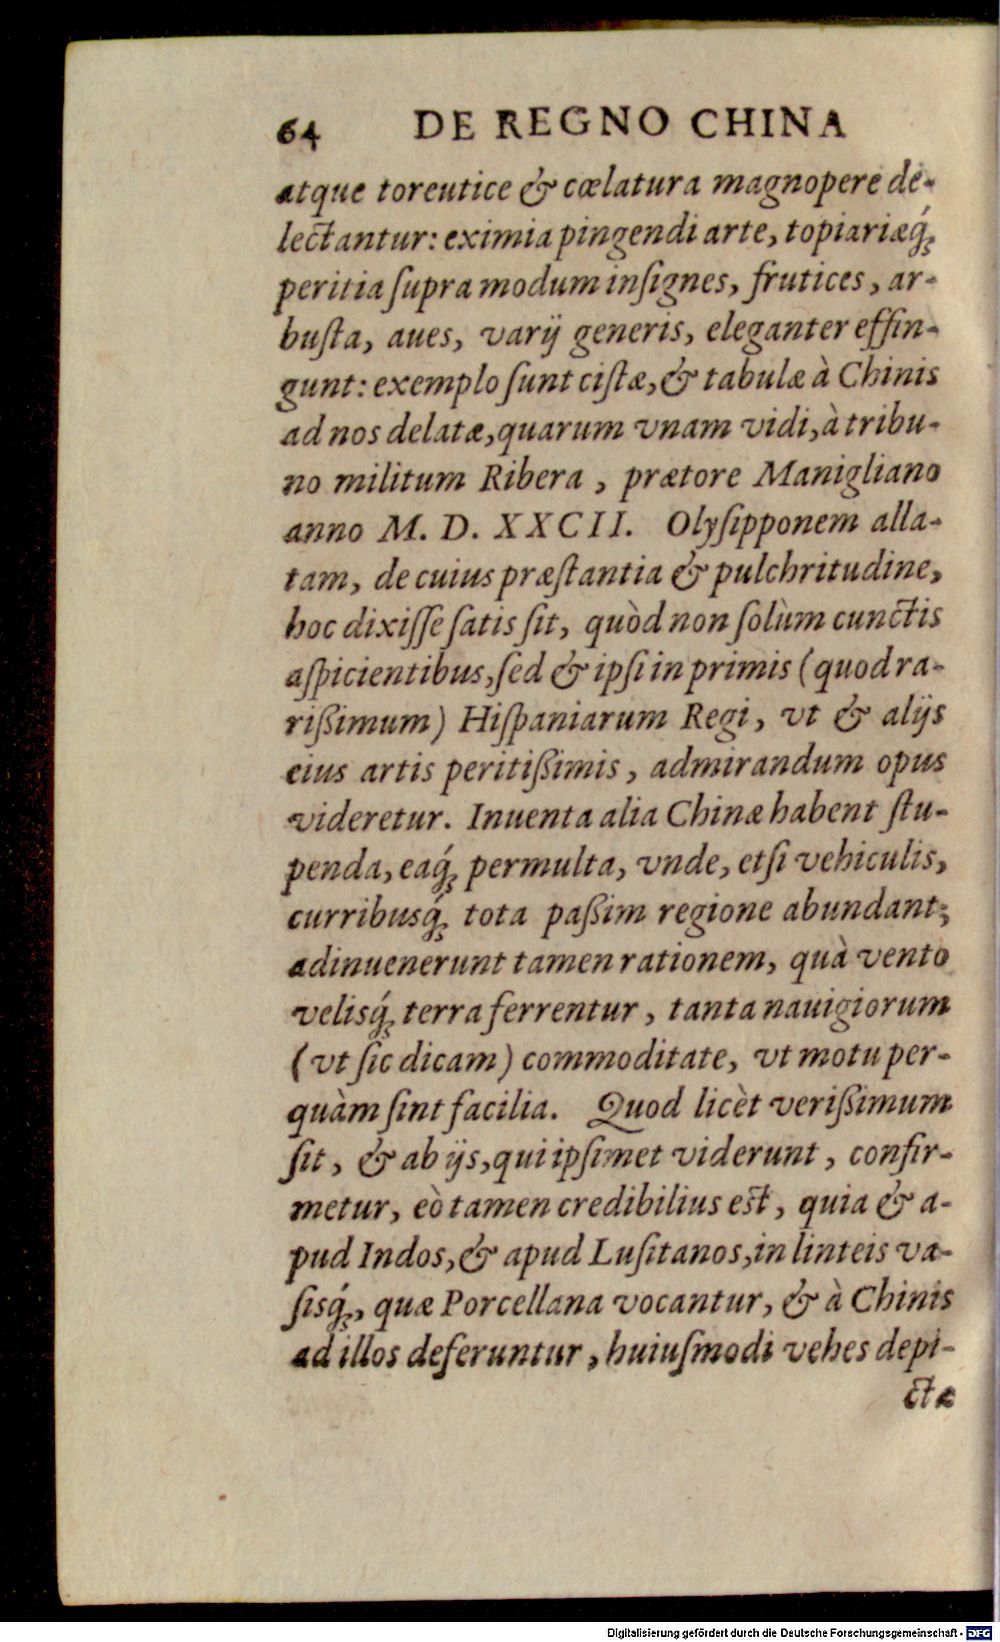 64 DE REGNO CHINA
atque toreutice & cœlatura magnopere de-
lectantur: eximia pingendi arte, topiariæq́;
peritia ſupra modum inſignes, frutices, ar-
buſta, aues, varij generis, eleganter effin-
gunt: exemplo ſunt ciſtæ, & tabulæ à Chinis
ad nos delatæ, quarum vnam vidi, à tribu-
no militum Ribera, prætore Manigliano
anno M. D. XXCII. Olyſipponem alla-
tam, de cuius præſtantia & pulchritudine,
hoc dixiſſe ſatis ſit, quòd non ſolùm cunctis
aſpicientibus, ſed & ipſi in primis (quod ra-
rißimum) Hiſpaniarum Regi, vt & alijs
eius artis peritißimis, admirandum opus
videretur. Inuenta alia Chinæ habent ſtu-
penda, eaq́; permulta, vnde, etſi vehiculis,
curribusq́; tota paßim regione abundant;
adinuenerunt tamen rationem, quà vento
velisq́; terra ferrentur, tanta nauigiorum
(vt ſic dicam) commoditate, vt motu per-
quàm ſint facilia. Quod licèt verißimum
ſit, & ab ijs, qui ipſimet viderunt, confir-
metur, eò tamen credibilius est, quia & a-
pud Indos, & apud Luſitanos, in linteis va-
ſisq́;, quæ Porcellana vocantur, & à Chinis
ad illos deferuntur, huiuſmodi vehes depi-
ctæ
Digitalisierung gefördert durch die Deutsche Forschungsgemeinschaft - DFG